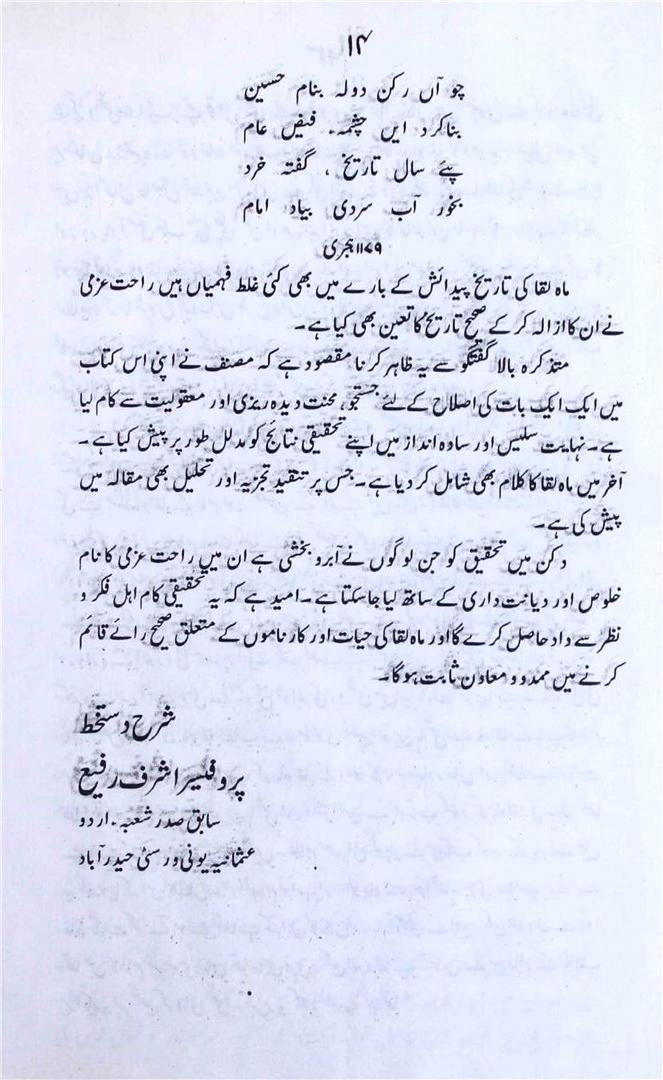 ۱۴
چو آں رکن دولہ بنام حسین
بنا کرد ایں چشمہ۔ فیض عام
پئے سال تاریخ ، گفتہ خرد
بخور آب سردی بیاد امام
۱۱۷۹ ہجری
ماہ لقا کی تاریخ پیدائش کے بارے میں بھی کئی غلط فہمیاں ہیں راحت عزمی
نے ان کا ازالہ کر کے صحیح تاریخ کا تعین بھی کیا ہے۔
متذکرہ بالا گفتگو سے یہ ظاہر کرنا مقصود ہے کہ مصنف نے اپنی اس کتاب
میں ایک ایک بات کی اصلاح کے لئے جستجو، محنت دیدہ ریزی اور معقولیت سے کام لیا
ہے۔ نہایت سلیس اور سادہ انداز میں اپنے تحقیقی نتائج کو مدلل طور پر پیش کیا ہے۔
آخر میں ماہ لقا کا کلام بھی شامل کر دیا ہے۔ جس پر تنقید تجزیہ اور تحلیل بھی مقالہ میں
پیش کی ہے۔
دکن میں تحقیق کو جن لوگوں نے آبرو بخشی ہے ان میں راحت عزمی کا نام
خلوص اور دیانت داری کے ساتھ لیا جا سکتا ہے۔ امید ہے کہ یہ تحقیقی کام اہل فکر و
نظر سے داد حاصل کرے گا اور ماہ لقا کی حیات اور کارناموں کے متعلق صحیح رائے قائم
کرنے میں ممد و معاون ثابت ہو گا۔
شرح دستخط
پروفیسر اشرف رفیع
سابق صدر شعبہ۔ اردو
عثمانیہ یونی ورسٹی حیدرآباد